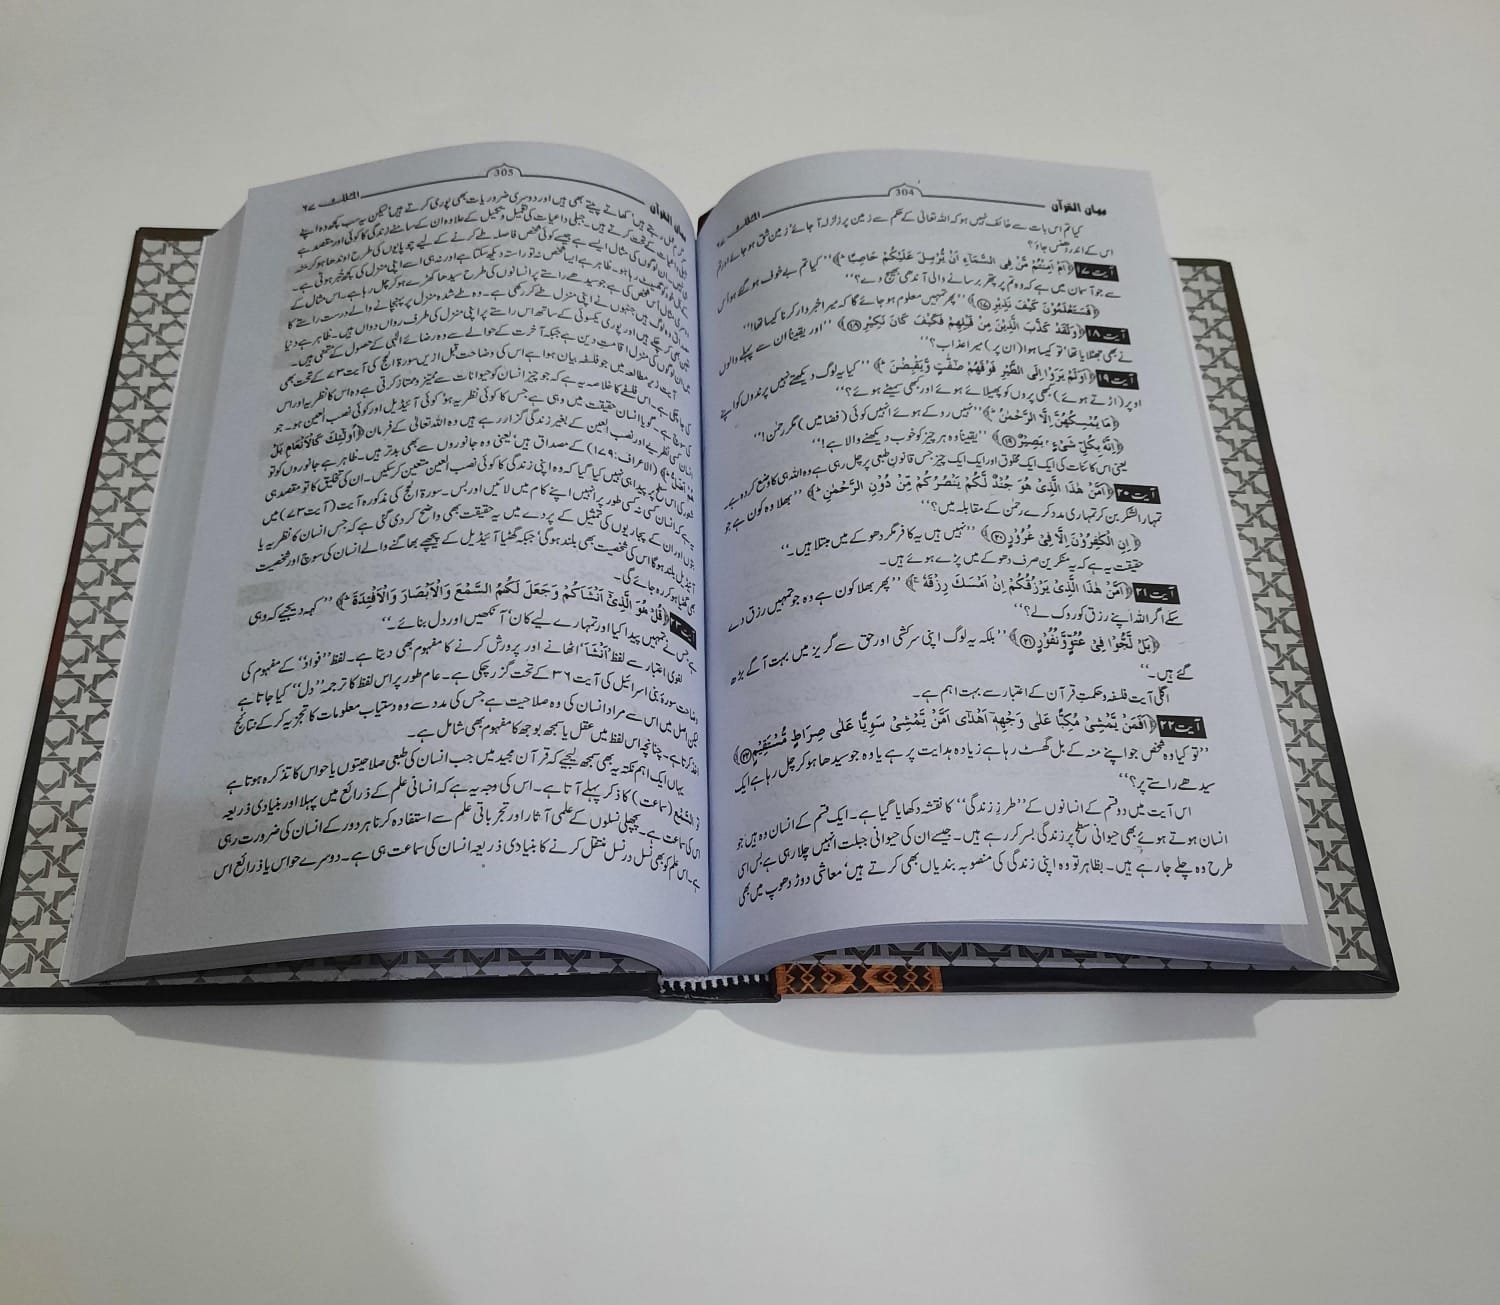 بیان القرآن
304
الملک ۶۷
کیا تم اس بات سے خائف نہیں ہو کہ اللہ تعالیٰ کے حکم سے زمین پر زلزلہ آ جائے' زمین شق ہو جائے اور تم
اس کے اندر دھنس جاؤ؟
آیت ۱۷ ﴿اَمْ اَمِنْتُمْ مَّنْ فِی السَّمَآءِ اَنْ یُّرْسِلَ عَلَیْكُمْ حَاصِبًا ؕ﴾ ''کیا تم بے خوف ہو گئے ہو اُس
سے جو آسمان میں ہے کہ وہ تم پر پتھر برسانے والی آندھی بھیج دے؟''
﴿فَسَتَعْلَمُوْنَ كَیْفَ نَذِیْرِ ﴿۱۷﴾﴾ ''پھر تمہیں معلوم ہو جائے گا کہ میرا خبردار کرنا کیسا تھا!''
آیت ۱۸ ﴿وَلَقَدْ كَذَّبَ الَّذِیْنَ مِنْ قَبْلِهِمْ فَكَیْفَ كَانَ نَكِیْرِ ﴿۱۸﴾﴾ ''اور یقیناً ان سے پہلے والوں
نے بھی جھٹلایا تھا' تو کیسا ہوا (ان پر) میرا عذاب؟''
آیت ۱۹ ﴿اَوَلَمْ یَرَوْا اِلَی الطَّیْرِ فَوْقَهُمْ صٰٓفّٰتٍ وَّیَقْبِضْنَ ؔ﴾ ''کیا یہ لوگ دیکھتے نہیں پرندوں کو اپنے
اوپر (اڑتے ہوئے) کبھی پروں کو پھیلائے ہوئے اور کبھی سمیٹے ہوئے؟''
﴿مَا یُمْسِكُهُنَّ اِلَّا الرَّحْمٰنُ ؕ﴾ ''نہیں روکے ہوئے انہیں کوئی (فضا میں) مگر رحمٰن!''
﴿اِنَّهٗ بِكُلِّ شَیْءٍۭ بَصِیْرٌ ﴿۱۹﴾﴾ ''یقیناً وہ ہر چیز کو خوب دیکھنے والا ہے!''
یعنی اس کائنات کی ایک ایک مخلوق اور ایک ایک چیز جس قانونِ طبعی پر چل رہی ہے وہ اللہ ہی کا وضع کردہ ہے۔
آیت ۲۰ ﴿اَمَّنْ هٰذَا الَّذِیْ هُوَ جُنْدٌ لَّكُمْ یَنْصُرُكُمْ مِّنْ دُوْنِ الرَّحْمٰنِ ؕ﴾ ''بھلا وہ کون ہے جو
تمہارا لشکر بن کر تمہاری مدد کرے رحمٰن کے مقابلہ میں؟''
﴿اِنِ الْكٰفِرُوْنَ اِلَّا فِیْ غُرُوْرٍ ﴿۲۰﴾﴾ ''نہیں ہیں یہ کافر مگر دھوکے میں مبتلا ہیں۔''
حقیقت یہ ہے کہ یہ منکرین صرف دھوکے میں پڑے ہوئے ہیں۔
آیت ۲۱ ﴿اَمَّنْ هٰذَا الَّذِیْ یَرْزُقُكُمْ اِنْ اَمْسَكَ رِزْقَهٗ ۚ﴾ ''پھر بھلا کون ہے وہ جو تمہیں رزق دے
سکے اگر اللہ اپنے رزق کو روک لے؟''
﴿بَلْ لَّجُّوْا فِیْ عُتُوٍّ وَّنُفُوْرٍ ﴿۲۱﴾﴾ ''بلکہ یہ لوگ اپنی سرکشی اور حق سے گریز میں بہت آگے بڑھ
گئے ہیں۔''
اگلی آیت فلسفہ و حکمتِ قرآن کے اعتبار سے بہت اہم ہے۔
آیت ۲۲ ﴿اَفَمَنْ یَّمْشِیْ مُكِبًّا عَلٰی وَجْهِهٖۤ اَهْدٰۤی اَمَّنْ یَّمْشِیْ سَوِیًّا عَلٰی صِرَاطٍ مُّسْتَقِیْمٍ ﴿۲۲﴾﴾
''تو کیا وہ شخص جو اپنے منہ کے بل گھسٹ رہا ہے زیادہ ہدایت پر ہے یا وہ جو سیدھا ہو کر چل رہا ہے ایک
سیدھے راستے پر؟''
اس آیت میں دو قسم کے انسانوں کے ''طرزِ زندگی'' کا نقشہ دکھایا گیا ہے۔ ایک قسم کے انسان وہ ہیں جو
انسان ہوتے ہوئے بھی حیوانی سطح پر زندگی بسر کر رہے ہیں۔ جیسے ان کی حیوانی جبلت انہیں چلا رہی ہے بس اسی
طرح وہ چلے جا رہے ہیں۔ بظاہر تو وہ اپنی زندگی کی منصوبہ بندیاں بھی کرتے ہیں' معاشی دوڑ دھوپ میں بھی
بیان القرآن
305
الملک ۶۷
سرگرمِ عمل رہتے ہیں' کھاتے پیتے بھی ہیں اور دوسری ضروریات بھی پوری کرتے ہیں' لیکن یہ سب کچھ وہ اپنے
جبلی داعیات کے تحت کرتے ہیں۔ جبلی داعیات کی تعمیل و تکمیل کے علاوہ ان کے سامنے زندگی کا کوئی اور مقصد ہے
ہی نہیں۔ ان لوگوں کی مثال ایسے ہے جیسے کوئی شخص فاصلہ طے کرنے کے لیے چوپایوں کی طرح اوندھا ہو کر منہ
کے بل خود کو گھسیٹ رہا ہو۔ ظاہر ہے ایسا شخص نہ تو راستہ دیکھ سکتا ہے اور نہ ہی اسے اپنی منزل کی کچھ خبر ہوتی ہے۔
دوسری مثال اُس شخص کی ہے جو سیدھے راستے پر انسانوں کی طرح سیدھا کھڑے ہو کر چل رہا ہے۔ اس مثال کے
مصداق وہ لوگ ہیں جنہوں نے اپنی منزل طے کر رکھی ہے۔ وہ طے شدہ منزل پر پہنچانے والے درست راستے کا
تعین بھی کر چکے ہیں اور پوری یکسوئی کے ساتھ اس راستے پر اپنی منزل کی طرف رواں دواں ہیں۔ ظاہر ہے دنیا
میں ان لوگوں کی منزل اقامتِ دین ہے جبکہ آخرت کے حوالے سے وہ رضائے الٰہی کے حصول کے متمنی ہیں۔
آیت زیر مطالعہ میں جو فلسفہ بیان ہوا ہے اس کی وضاحت قبل ازیں سورۃ الحج کی آیت ۷۳ کے تحت بھی
کی جا چکی ہے۔ اس فلسفے کا خلاصہ یہ ہے کہ جو چیز انسان کو حیوانات سے ممیز و ممتاز کرتی ہے وہ اس کا نظریہ اور اس
کی سوچ ہے۔ گویا انسان حقیقت میں وہی ہے جس کا کوئی نظریہ ہو' کوئی آئیڈیل اور کوئی نصب العین ہو۔ جو
انسان کسی نظریے اور نصب العین کے بغیر زندگی گزار رہے ہیں وہ اللہ تعالیٰ کے فرمان ﴿اُولٰٓئِكَ كَالْاَنْعَامِ بَلْ
هُمْ اَضَلُّ ؕ﴾ (الاعراف:۱۷۹) کے مصداق ہیں' یعنی وہ جانوروں سے بھی بدتر ہیں۔ ظاہر ہے جانوروں کو تو
شعور کی اس سطح پر پیدا ہی نہیں کیا گیا کہ وہ اپنی زندگی کا کوئی نصب العین متعین کر سکیں۔ ان کی تخلیق کا تو مقصد ہی
یہ ہے کہ انسان کسی نہ کسی طور پر انہیں اپنے کام میں لائیں اور بس۔ سورۃ الحج کی مذکورہ آیت (آیت ۷۳) میں
بتوں اور ان کے پجاریوں کی تمثیل کے پردے میں یہ حقیقت بھی واضح کر دی گئی ہے کہ جس انسان کا نظریہ یا
آئیڈیل بلند ہوگا اس کی شخصیت بھی بلند ہوگی' جبکہ گھٹیا آئیڈیل کے پیچھے بھاگنے والے انسان کی سوچ اور شخصیت
بھی گھٹیا ہو کر رہ جائے گی۔
آیت ۲۳ ﴿قُلْ هُوَ الَّذِیْۤ اَنْشَاَكُمْ وَجَعَلَ لَكُمُ السَّمْعَ وَالْاَبْصَارَ وَالْاَفْـِٕدَةَ ؕ﴾ ''کہہ دیجیے کہ وہی
ہے جس نے تمہیں پیدا کیا اور تمہارے لیے کان' آنکھیں اور دل بنائے۔''
لغوی اعتبار سے لفظ 'اَنْشَاَ' اٹھانے اور پرورش کرنے کا مفہوم بھی دیتا ہے۔ لفظ ''فواد'' کے مفہوم کی
وضاحت سورۂ بنی اسرائیل کی آیت ۳۶ کے تحت گزر چکی ہے۔ عام طور پر اس لفظ کا ترجمہ ''دل'' کیا جاتا ہے
لیکن اصل میں اس سے مراد انسان کی وہ صلاحیت ہے جس کی مدد سے وہ دستیاب معلومات کا تجزیہ کر کے نتائج
اخذ کرتا ہے۔ چنانچہ اس لفظ میں عقل یا سمجھ بوجھ کا مفہوم بھی شامل ہے۔
یہاں ایک اہم نکتہ یہ بھی سمجھ لیجیے کہ قرآن مجید میں جب انسان کی طبعی صلاحیتوں یا حواس کا تذکرہ ہوتا ہے
تو السَّمْع (سماعت) کا ذکر پہلے آتا ہے۔ اس کی وجہ یہ ہے کہ انسانی علم کے ذرائع میں پہلا اور بنیادی ذریعہ
اس کی سماعت ہے۔ پچھلی نسلوں کے علمی آثار اور تجرباتی علم سے استفادہ کرنا ہر دور کے انسان کی ضرورت رہی
ہے۔ اس علم کو بھی نسل در نسل منتقل کرنے کا بنیادی ذریعہ انسان کی سماعت ہی ہے۔ دوسرے حواس یا ذرائع اس